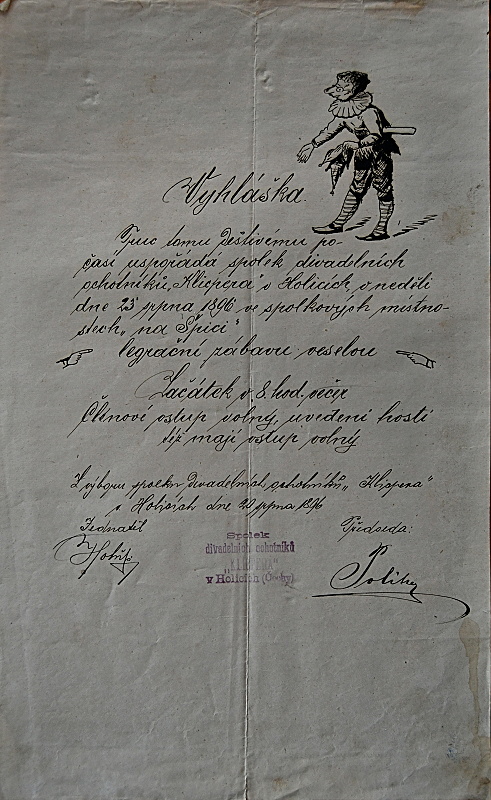 Vyhláška.
Truc tomu deštivému po-
časí uspořádá spolek divadelních
ochotníků „Klicpera" v Holicích, v neděli
dne 23 srpna 1896 ve spolkových místno-
stech „na Špici"
legrační zábavu veselou
Začátek v 8. hod. večer
Členové vstup volný, uvedení hosti
též mají vstup volný
Z výboru spolku divadelních ochotníků „Klicpera"
v Holicích dne 20 srpna 1896
Jednatel Předseda:
Spolek
divadelních ochotníků
„KLICPERA"
v Holicích (Čechy)